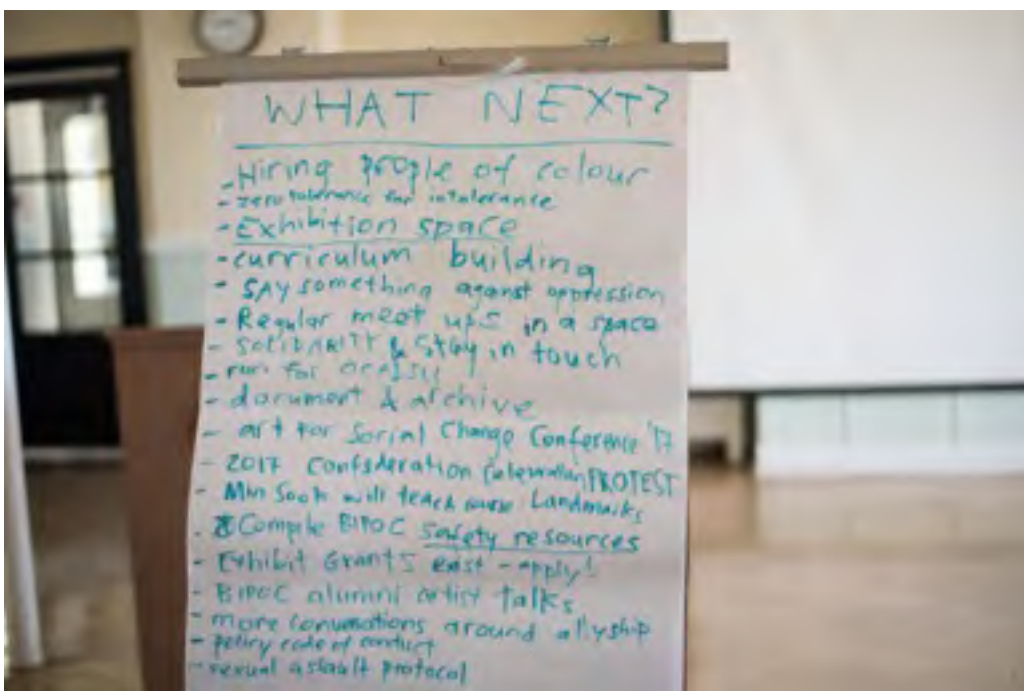 WHAT NEXT?
- Hiring people of colour
- zero tolerance for intolerance
- Exhibition space
- curriculum building
- SAY something against oppression
- Regular meet ups in a space
- SOLIDARITY & Stay in touch
- run for
- document & archive
- art for Social Change Conference '17
- 2017 Confederation Celebration PROTEST
- Min Sook will teach course Landmarks
- Compile BIPOC safety resources
- Exhibit Grants exist - apply!
- BIPOC alumni artist talks
- more conversations around allyship
- policy code of conduct
- sexual assault protocol